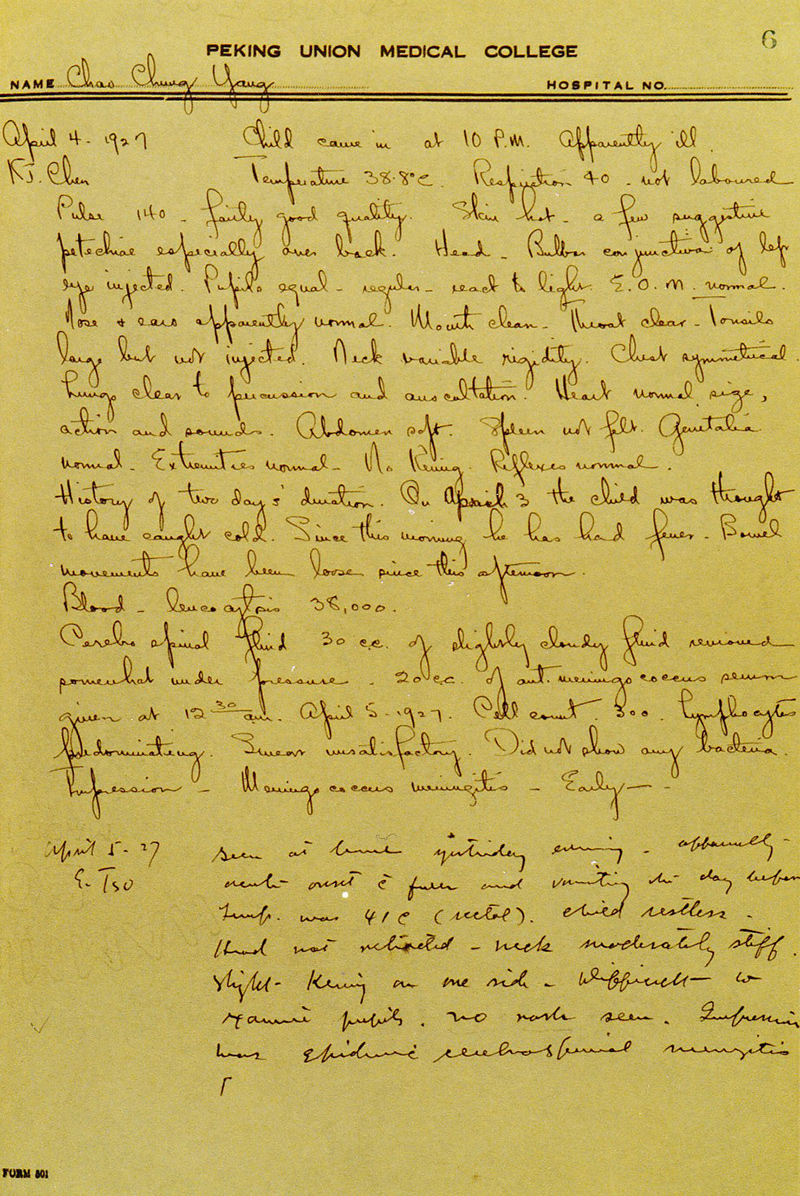 6
PEKING UNION MEDICAL COLLEGE
NAME Chao Chung Yang HOSPITAL NO.
April 4 - 1927 Child came in at 10 P.M. Apparently ill.
K.J. Chen Temperature 38.8°C. Respiration 40 - not laboured
Pulse 140 - fairly good quality. Skin hot - a few suggestive
petechiae especially over back. Head - Bulbar conjunctiva of left
eye injected. Pupils equal - regular - react to light. E.O.M. normal.
Nose & ears apparently normal. Mouth clean - Throat clear - Tonsils
large but not injected. Neck variable rigidity. Chest symmetrical.
Lungs clear to percussion and auscultation. Heart normal size,
action and sounds. Abdomen soft. Spleen not felt. Genitalia
normal - Extremities normal - No Kernig. Reflexes normal.
History of two days' duration. On April 3 the child was thought
to have caught cold. Since this morning he has had fever - Bowel
movements have been loose since this afternoon.
Blood - leucocytosis 38,000.
Cerebro spinal fluid 30 c.c. of slightly cloudy fluid removed
somewhat under pressure - 20 c.c. of anti meningococcus serum
given at 12 30 am. April 5 - 1927. Cell count 300. Lymphocytes
predominating. Smear unsatisfactory. Did not show any bacteria.
Impression - Meningococcus meningitis - Early -
April 5 - 27 Seen at home yesterday evening - apparently
E. Tso acute onset c̄ fever and vomiting the day before
Temp. was 41 C (rectal). Child restless -
Head not retracted - neck moderately stiff.
Slight Kernig on one side - Difficult to
examine pupils. No rash seen. Impression
was epidemic cerebrospinal meningitis
FORM 501